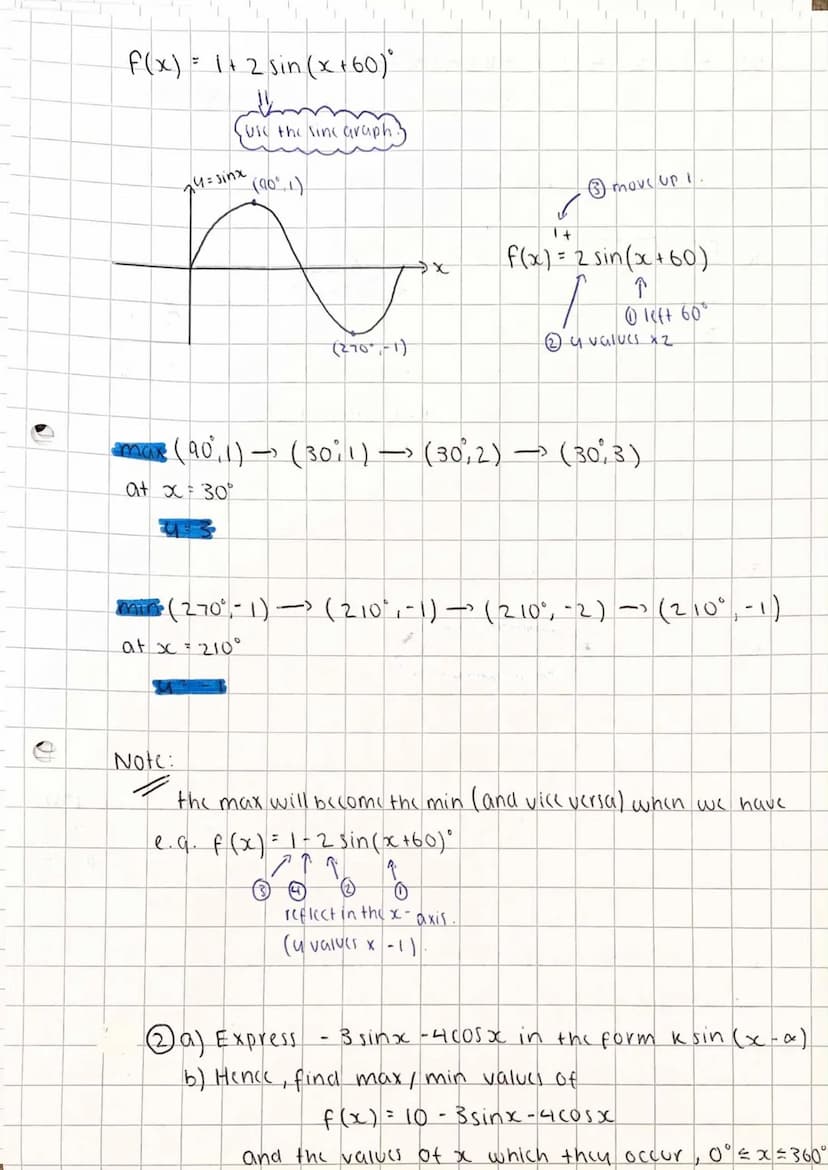 f(x) = 1 + 2 sin(x+60)°
use the sine graph
y = sinx
(90°, 1)
x
(270°, -1)
③ move up 1.
1 +
f(x) = 2 sin(x+60)
① left 60°
② y values x2
max (90°, 1) → (30°, 1) → (30°, 2) → (30°, 3)
at x = 30°
y = 3
min (270°, -1) → (210°, -1) → (210°, -2) → (210°, -1)
at x = 210°
y = -1
Note:
the max will become the min (and vice versa) when we have
e.g. f(x) = 1 - 2 sin(x+60)°
③ ④ ② ①
reflect in the x-axis.
(y values x -1).
② a) Express -3 sinx - 4cosx in the form k sin (x - α)
b) Hence, find max/min values of
f(x) = 10 - 3sinx - 4cosx
and the values of x which they occur, 0° ≤ x ≤ 360°